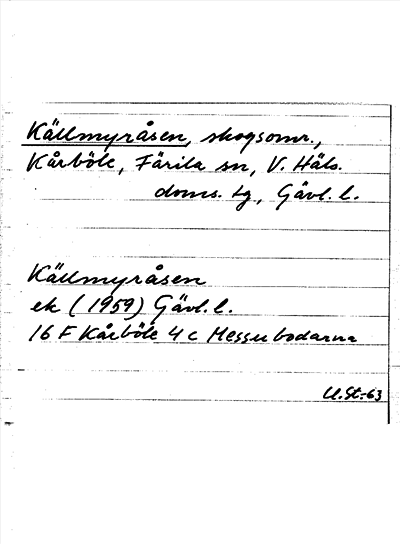 Källmyråsen, skogsomr.,
Kårböle, Färila sn, V. Häls.
doms. tg, Gävl. l.
Källmyråsen
ek (1959) Gävl. l.
16 F Kårböle 4 c Messubodarna
U.St.-63